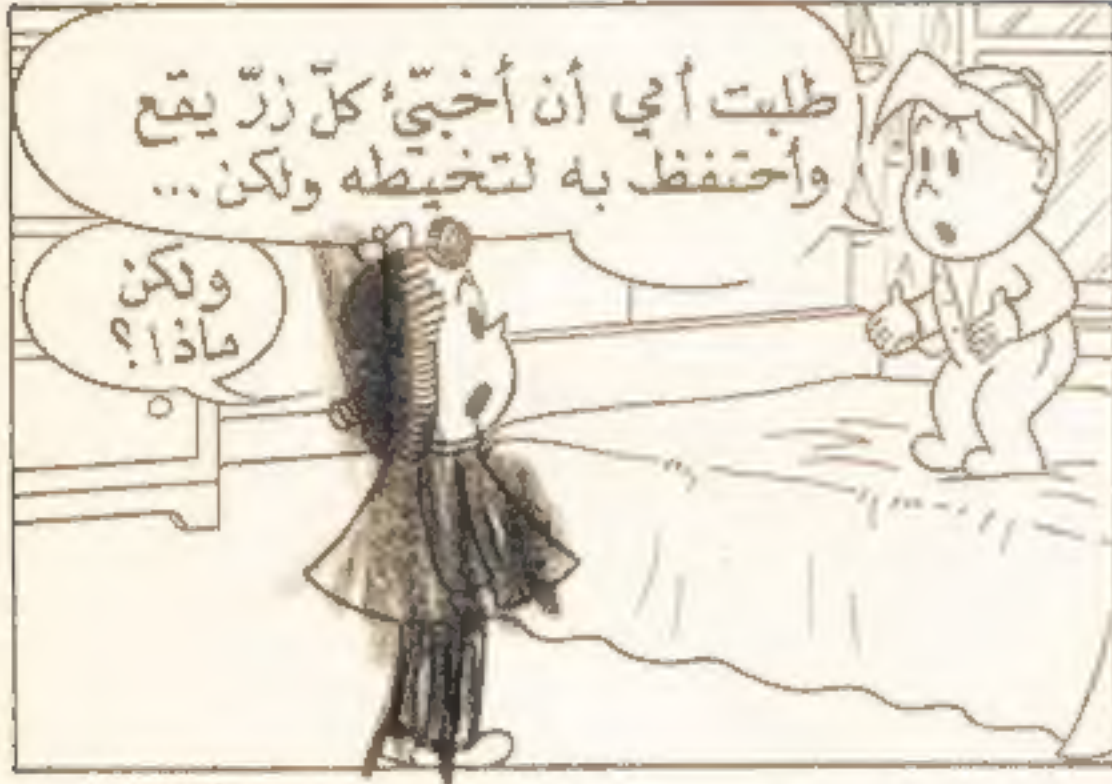 طلبت أمي أن أخبّئ كلّ زرّ يقع
وأحتفظ به لتخيّطه ولكن ...
ولكن
ماذا؟